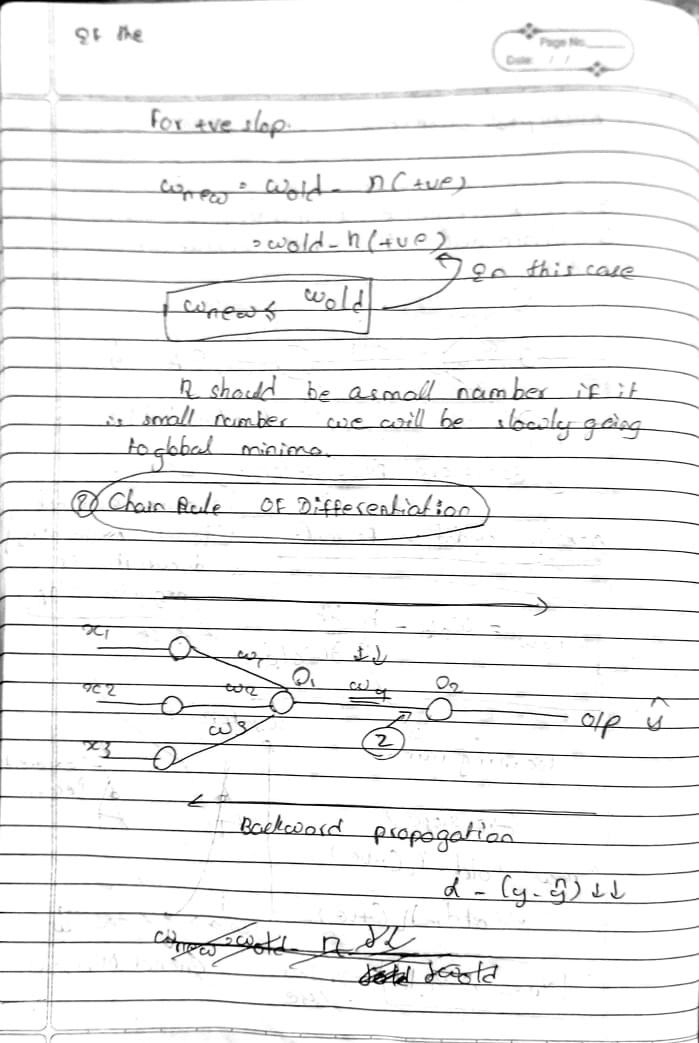 If the
Page No.
Date: / /
For +ve slop.
wnew = wold - η (+ve)
= wold - η (+ve)
In this case
wnew < wold
η should be a small namber if it
is small number we will be slowly going
to global minima.
② Chain Rule OF Differentiation
x1
w1
↓↓
x2
w2
O1
w4
O2
O/P ŷ
w3
x3
2
Backward propogation
L - (y - ŷ) ↓↓
wnew = wold - η ∂L
∂wold